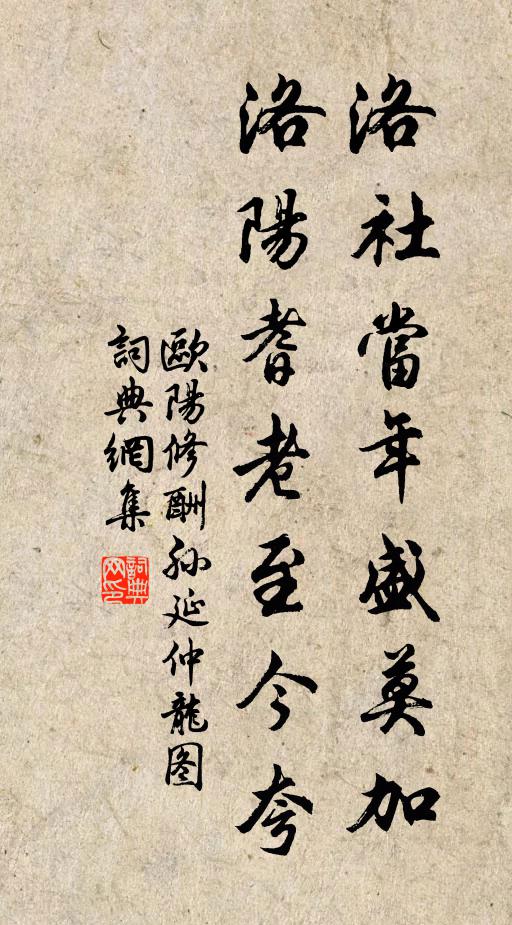 洛社當年盛莫加
洛陽耆老至今夸
歐陽修酬孙延仲龍图
詞典網集
詞典
网印